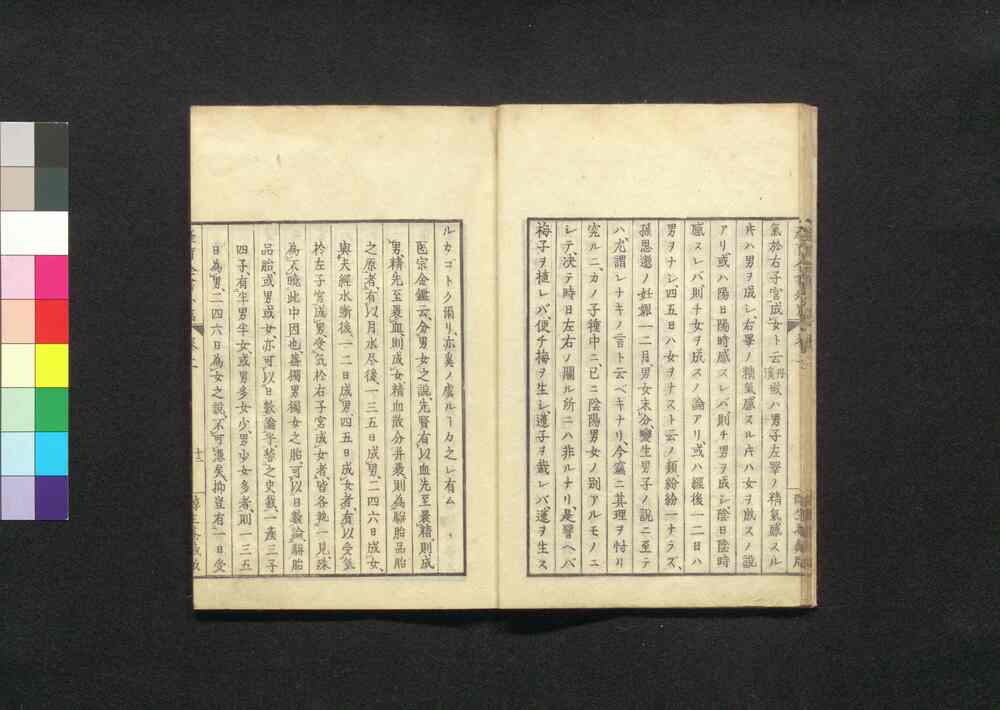 氣於右子宮成女ト云丹溪或ハ男子左睾ノ精氣感スル
𪜈ハ男ヲ成シ、右睾ノ精氣感スル𪜈ハ女ヲ成スノ説
アリ或ハ陽日陽時感スレバ則チ男ヲ成シ、陰日陰時
感スレバ則チ女ヲ成スノ論アリ或ハ經後一二日ハ
男ヲナシ、四五日ハ女ヲナスト云ノ類紛紛一ナラズ、
孫思邈ノ妊娠一二月男女未分變生男子ノ説ニ至テ
ハ尤謂レナキノ言ト云ベキナリ、今竊ニ其理ヲ
究ルニ、カノ子種中ニ已ニ陰陽男女ノ別アルモノニ
シテ、决テ時日左右ノ關ル所ニハ非ルナリ、是譬ヘバ
梅子ヲ植レバ、便チ梅ヲ生シ、蓮子ヲ栽レバ、蓮ヲ生ス
ルカゴトク爾リ、亦奚ノ慮ルヿカ之レ有ム
医宗金鑑云、分男女之説、先賢有以血先至裹精、則成
男、精先至裹血、則成女、精血散分并裹、則為駢胎品胎
之原者、有以月水尽後、一三五日成男、二四六日成女、
與夫經水斷後、一二日成男、四五日成女者、有以受氣
於左子宮成男、受氣於右子宮成女者、皆各執一見、殊
為不曉此中因也、蓋獨男獨女之胎、可以日數論、駢胎
品胎、或男或女亦可以日數論乎、嘗之史載、一產三子
四子、有半男半女或男多女少、男少女多者、則一三五
日為男、二四六日為女之説、不可憑矣、抑豈有一日受
十二